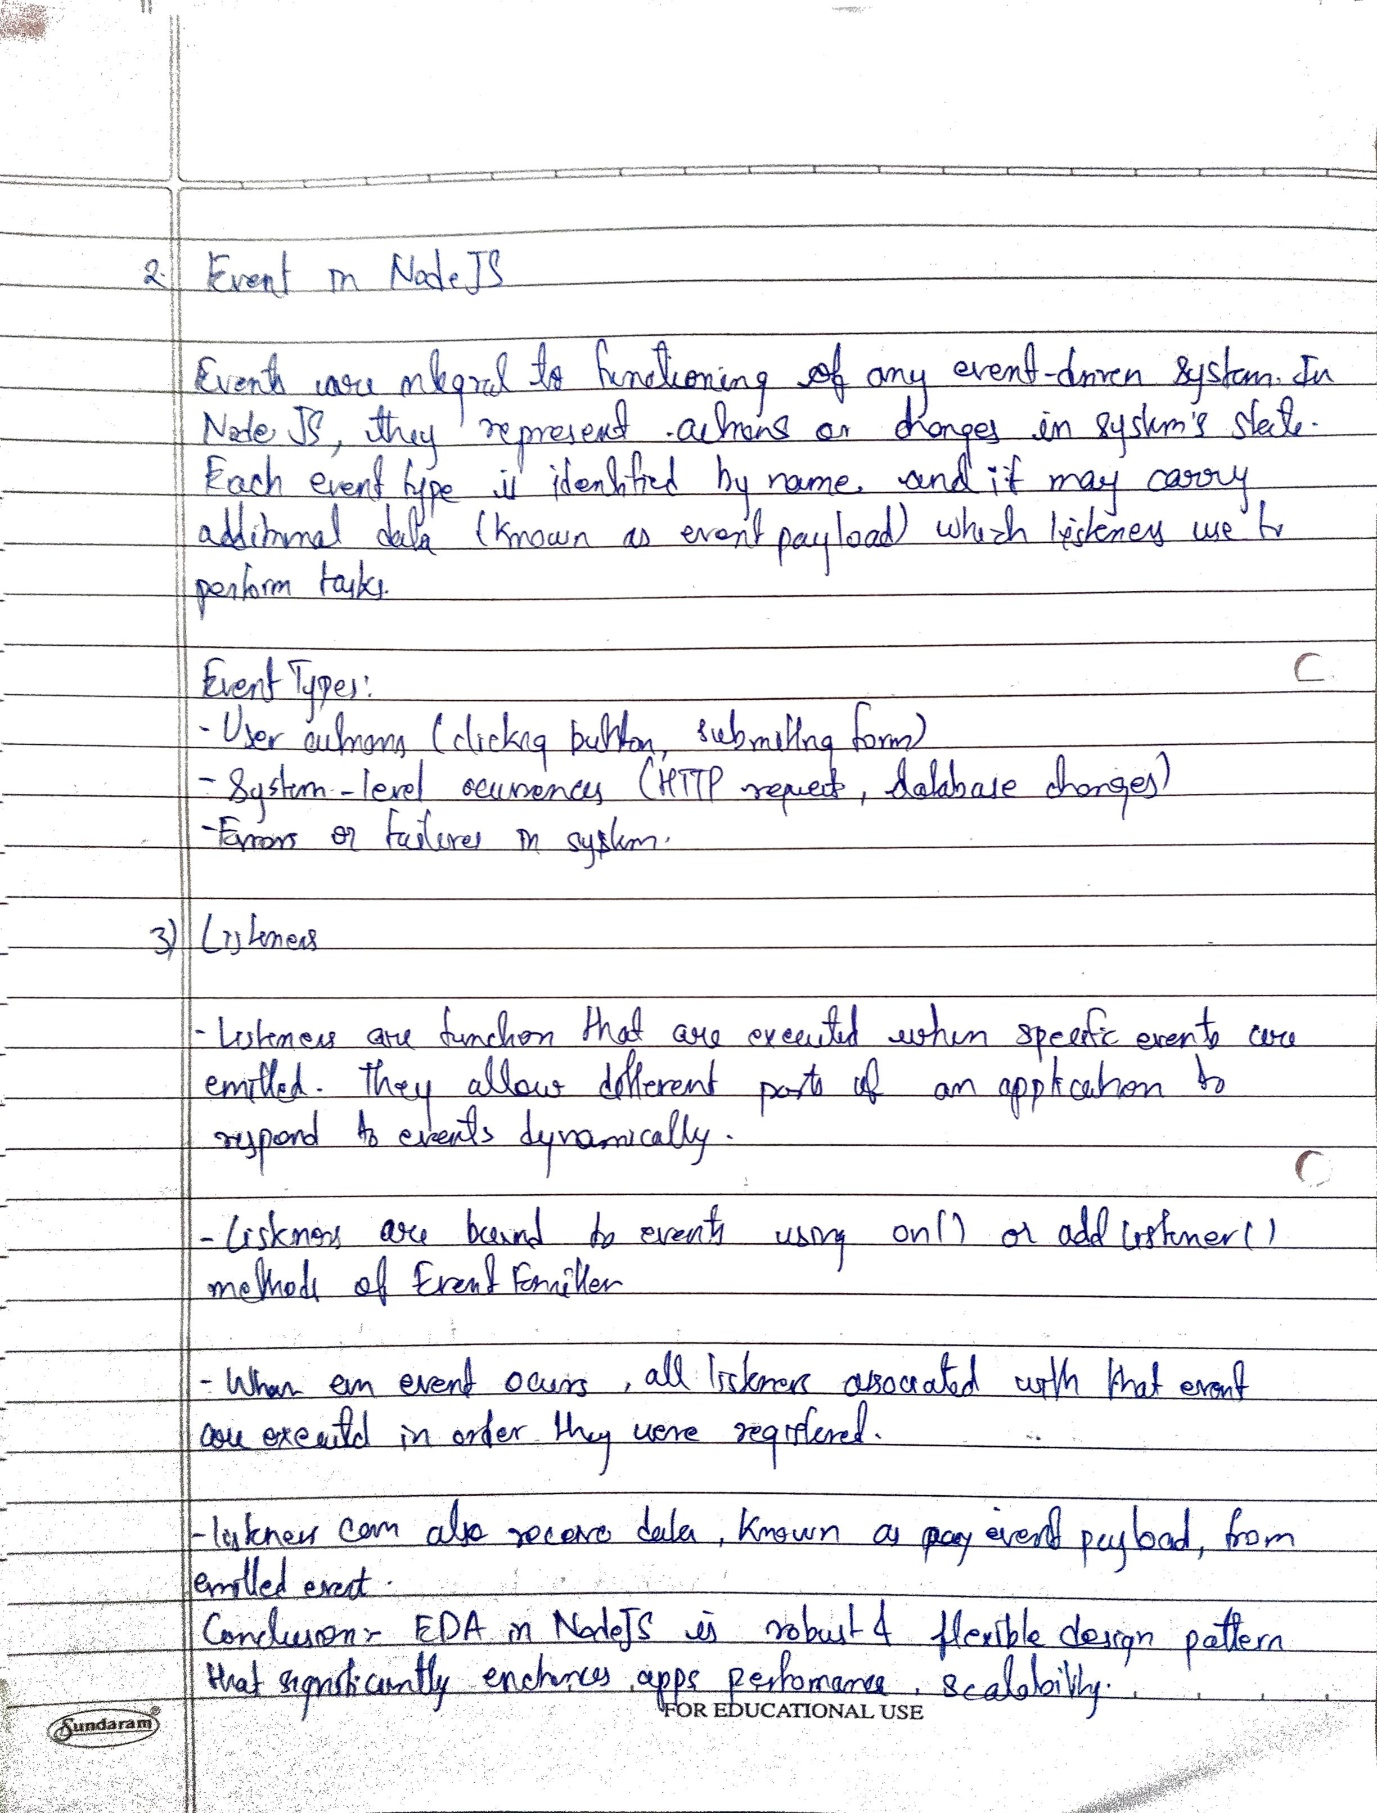 2. Event in NodeJS
Events are integral to functioning of any event-driven system. In
Node JS, they represent actions or changes in system's state.
Each event type is identified by name and it may carry
additional data (known as event payload) which listeners use to
perform tasks.
Event Types:
- User actions (clicking button, submitting form)
- System-level ocurrences (HTTP request, database changes)
- Errors or failures in system.
3) Listeners
- Listeners are function that are executed when specific events are
emitted. They allow different parts of an application to
respond to events dynamically.
- Listeners are bound to events using on() or addListener()
methods of Event Emitter
- When an event ocurs, all listeners associated with that event
are executed in order they were registered.
- listeners can also receive data, known as event payload, from
emitted event.
Conclusion:- EDA in NodeJS is robust & flexible design pattern
that significantly enchances apps perfomance, scalability.
Sundaram®
FOR EDUCATIONAL USE